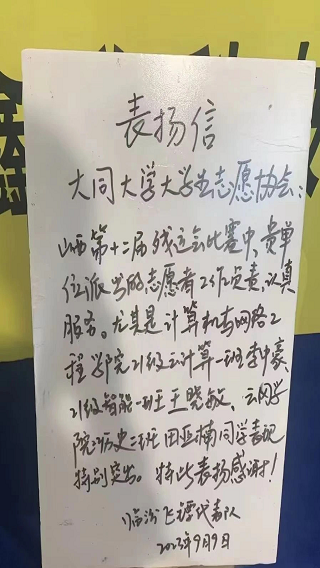 表扬信
大同大学大学生志愿协会：
山西第十二届残运会比赛中，贵单
位派出的志愿者工作负责，认真
服务。尤其是计算机与网络工
程学院21级云计算一班李中豪、
21级智能一班王晓敏、云冈学
院21历史二班田亚楠同学表现
特别突出。特此表扬感谢！
临汾飞镖代表队
2023年9月9日